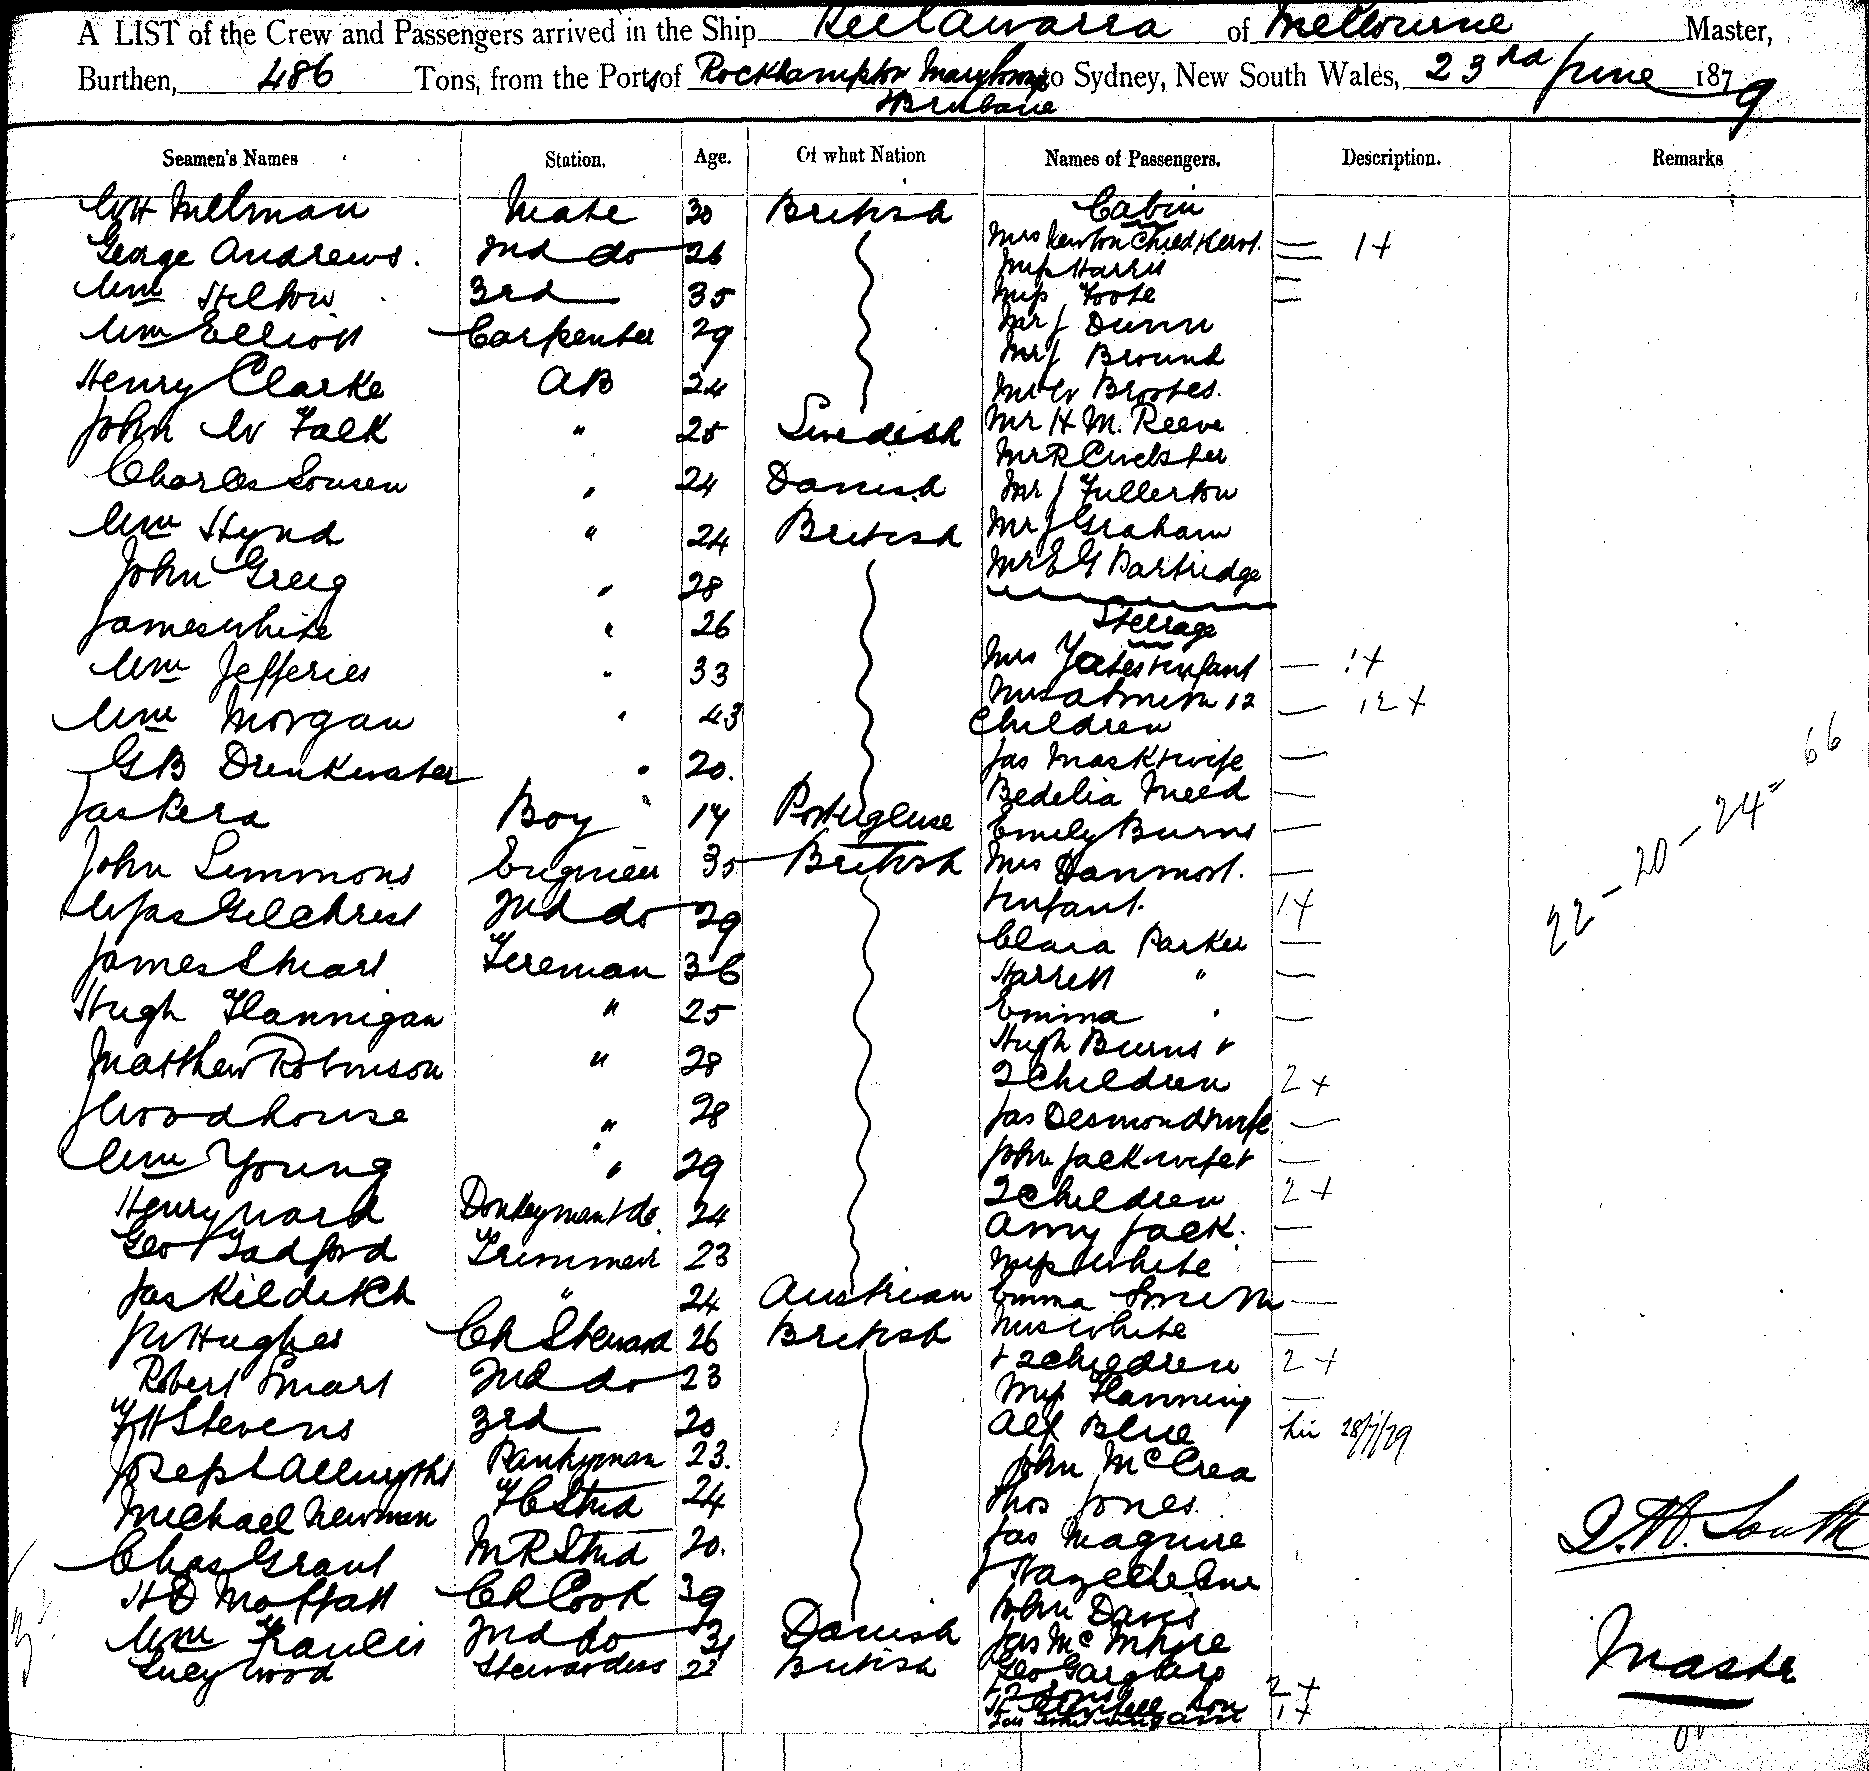 A LIST of the Crew and Passengers arrived in the Ship Keilawarra of Melbourne Master,
Burthen, 486 Tons, from the Ports of Rockhampton Maryboro to Sydney, New South Wales, 23rd June 1879
+ Brisbane
Seamen's Names Station. Age. Of what Nation Names of Passengers. Description. Remarks
WH Mellman Mate 30 British Cabin
George Andrews. 2nd do 26 Mrs Newton Child + Servt. 1+
Wm Hilton 3rd 35 Miss Harris
Miss Foote
Wm Elliott Carpenter 29 Mr J Dunn
Mr J Bround
Henry Clarke AB 24 Mr W Brookes.
John W Falk " 25 Swedish Mr H M. Reeve
Mr R
Charles Sonsen " 24 Danish Mr J Fullerton
Wm Hynd " 24 British Mr J Graham
John Greig " 28 Mr E G Partridge
James White " 26 Steerage
Wm Jefferies " 33 Mrs Yates + infant 1+
Wm Morgan " 43 Mrs Smith 12 12+
Children
GB Drinkwater " 20. Jas Mask + wife
Jas Pera Boy " 17 Portugeuse Bedelia Meed
Emily Burns
John Simmons Engineer 35 British Mrs Danmort.
Jas Gilchrist 2nd do 29 + infant. 1+
Clara Parker
James Stuart Fireman 36 Harrett "
Hugh Flannigan " 25 Emma "
Hugh Burns +
Matthew Robinson " 28 2 Children 2+
J Woodhouse " 28 Jas Desmond + wife
Wm Young " 29 John Jack wife +
Henry Ward Donkeyman + do. 24 2 Children 2+
Amy Jack.
Geo Tadford Trimmer 23 Miss White
Jas Kilditch " 24 Austrian Emma Smith
JW Hughes Ch Steward 26 British Mrs White
+ 2 children 2+
Robert Smart 2nd do 23 Miss Flanning
FH Stevens 3rd 20 Alf Blue 28/7/79
Joseph Pantryman 23. John McCrea
Michael Newman FC Stwd 24 Thos Jones
Chas Grant MR Stwd 20. Jas Maguire
J Hazeldene
HD Moffatt Ch Cook 39 John Davis
Wm Francis 2nd do 31 Danish Jas McIntyre
Lucy Wood Stewardess 22 British Geo
2+
1+
22 – 20 – 24 = 66
Master